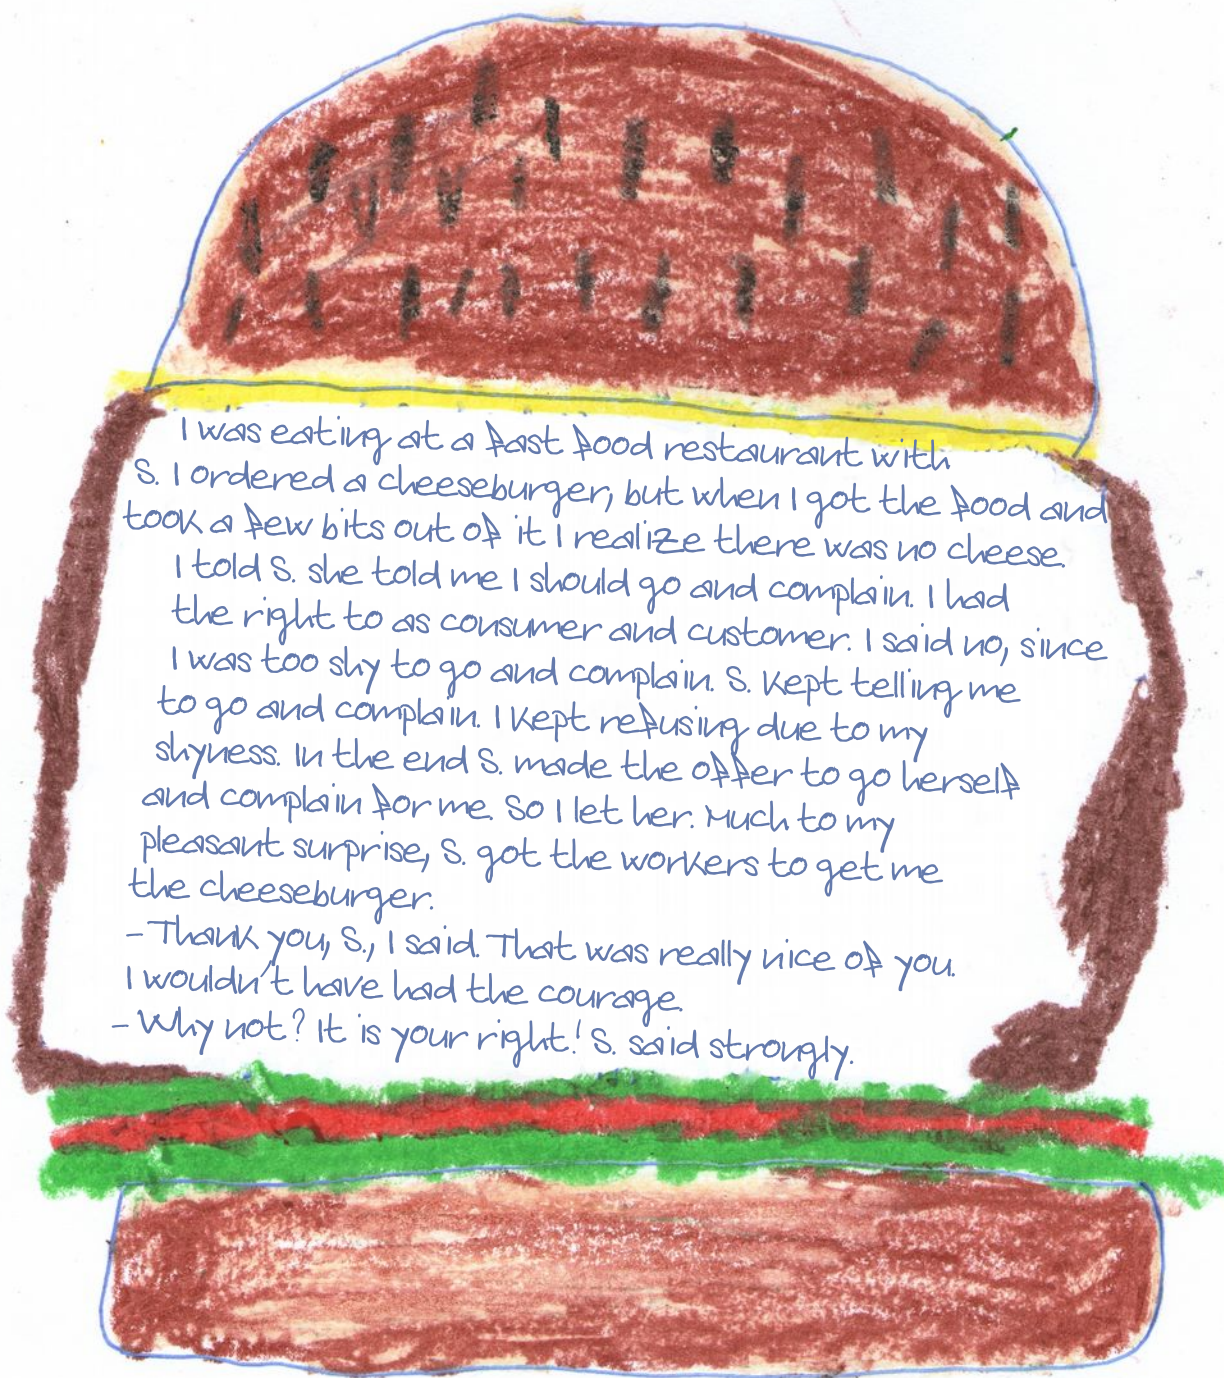 I was eating at a fast food restaurant with
S. I ordered a cheeseburger, but when I got the food and
took a few bits out of it I realize there was no cheese.
I told S. she told me I should go and complain. I had
the right to as consumer and customer. I said no, since
I was too shy to go and complain. S. kept telling me
to go and complain. I kept refusing due to my
shyness. In the end S. made the offer to go herself
and complain for me. So I let her. Much to my
pleasant surprise, S. got the workers to get me
the cheeseburger.
- Thank you, S., I said. That was really nice of you.
I wouldn't have had the courage.
- Why not? It is your right! S. said strongly.